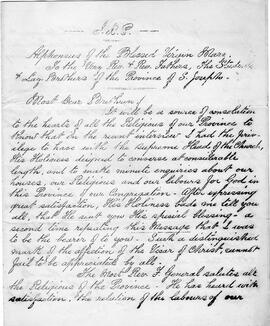 J. X. P.
Alphonsus of the Blessed Virgin Mary.
To the Very Rev. & Rev. Fathers, The Students
& Lay Brothers of the Province of S. Joseph.
Most Dear Brethren,
It will be a source of consolation
to the hearts of all the Religious of our Province to
know that in the recent interview I had the privi-
lege to have with the Supreme Head of the Church,
His Holiness deigned to converse at considerable
length, and to make minute enquiries about our
houses, our Religious and our labours for God in
this Province of our Congregation. After expressing
great satisfaction, His Holiness bade me tell you
all, that He sent you His special blessing – a
second time repeating this Message that I was
to be the bearer of to you. Such a distinguished
mark of the affection of the Vicar of Christ, cannot
fail to be appreciated by all.
The Most Rev. F. General salutes all
the Religious of the Province. He has heard with
satisfaction, the relation of the labours of our